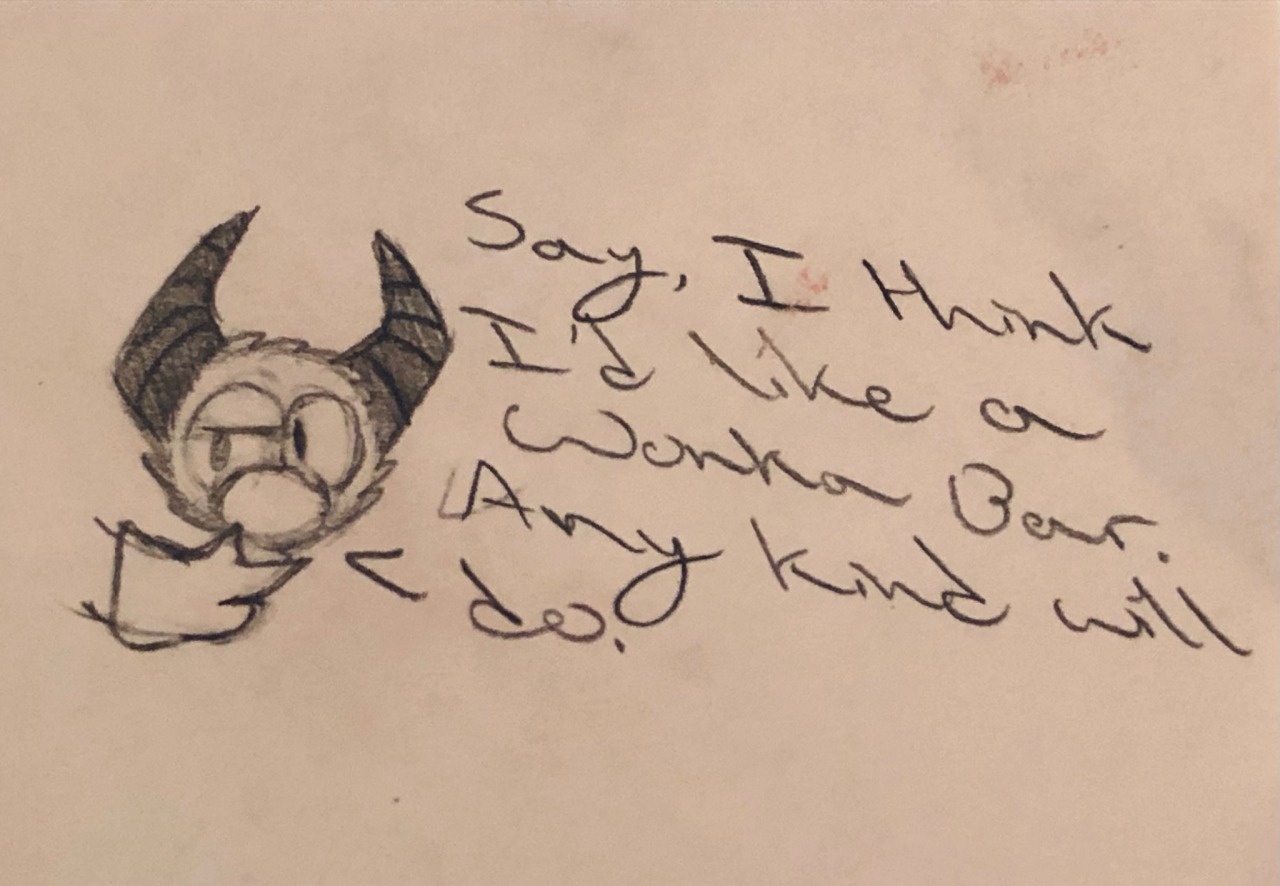 Say, I think
I'd like a
Wonka Bar.
Any kind will
do.